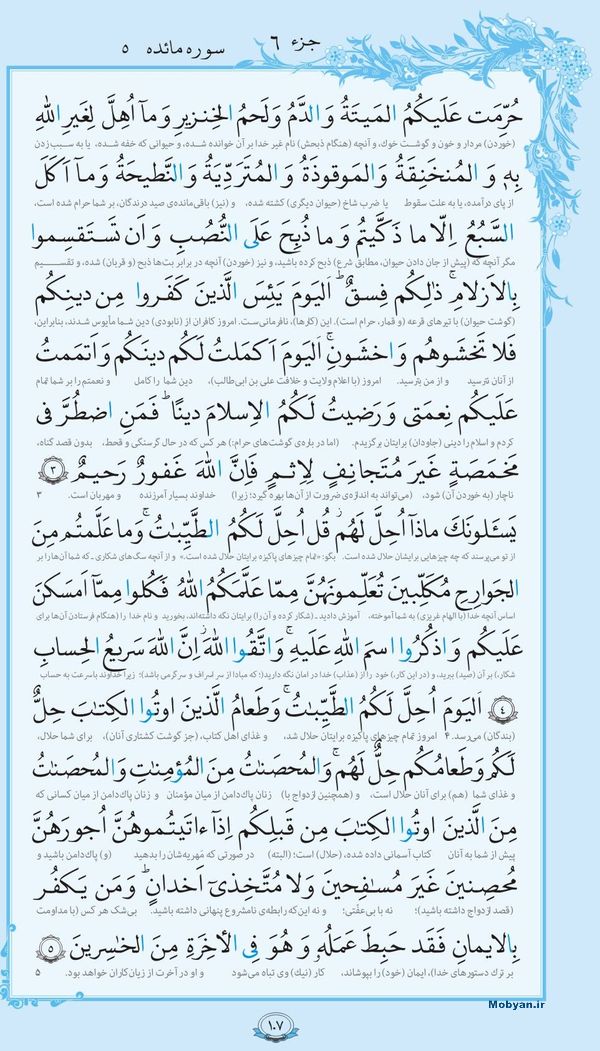 جزء ۶
سوره مائده ۵
حُرِّمَت عَلَيكُمُ المَيتَةُ وَ الدَّمُ وَ لَحمُ الخِنزيرِ وَ مآ اُهِلَّ لِغَيرِ اللهِ
(خوردن) مردار و خون و گوشت خوك، و آنچه (هنگام ذبحش) نام غیر خدا بر آن خوانده شده، و حیوانی که خفه شده، یا به سبب زدن
بِه۪ وَ المُنخَنِقَةُ وَ المَوقوذَةُ وَ المُتَرَدِّيَةُ وَ النَّطيحَةُ وَ مآ اَكَلَ
از پای درآمده، یا به علت سقوط یا ضرب شاخ (حیوان دیگری) کشته شده، و (نیز) باقی‌مانده‌ی صید درندگان، بر شما حرام شده است،
السَّبُعُ اِلّا ما ذَكَّيتُم وَ ما ذُبِحَ عَلَى النُّصُبِ وَ اَن تَستَقسِموا
مگر آنچه که (پیش از جان دادن حیوان، مطابق شرع) ذبح کرده باشید، و نیز (خوردن) آنچه در برابر بت‌ها ذبح (و قربان) شده، و تقسیم
بِالاَزلامِ ۚ ذٰلِكُم فِسقٌ ۗ اَليَومَ يَئِسَ الَّذينَ كَفَروا مِن دينِكُم
(گوشت حیوان) با تیرهای قرعه (و قمار، حرام است). این (کارها)، نافرمانی‌ست. امروز کافران از (نابودی) دین شما مأیوس شدند، بنابراین،
فَلا تَخشَوهُم وَ اخشَونِ ۚ اَليَومَ اَكمَلتُ لَكُم دينَكُم وَ اَتمَمتُ
از آنان نترسید و از من بترسید. امروز (با اعلام ولایت و خلافت علی بن ابی‌طالب)، دین شما را کامل و نعمتم را بر شما تمام
عَلَيكُم نِعمَتى وَ رَضيتُ لَكُمُ الاِسلامَ دينًا ۚ فَمَنِ اضطُرَّ فى
کردم و اسلام را دینی (جاودان) برایتان برگزیدم. (اما در باره‌ی گوشت‌های حرام:) هر کس که در حال گرسنگی و قحط، بدون قصد گناه،
مَخمَصَةٍ غَيرَ مُتَجانِفٍ لِاِثمٍ ۙ فَاِنَّ اللهَ غَفورٌ رَحيمٌ ﴿۳﴾
ناچار (به خوردن آن) شود، (می‌تواند به اندازه‌ی ضرورت از آن‌ها بهره گیرد؛ زیرا) خداوند بسیار آمرزنده و مهربان است. ۳
يَسـَٔلونَكَ ماذآ اُحِلَّ لَهُم ۖ قُل اُحِلَّ لَكُمُ الطَّيِّبٰتُ ۙ وَ ما عَلَّمتُم مِنَ
از تو می‌پرسند که چه چیزهایی برایشان حلال شده است. بگو: «تمام چیزهای پاکیزه برایتان حلال شده است.» و از آنچه سگ‌های شکاری ـ که شما آن‌ها را بر
الجَوارِحِ مُكَلِّبينَ تُعَلِّمونَهُنَّ مِمّا عَلَّمَكُمُ اللهُ ۖ فَكُلوا مِمّآ اَمسَكنَ
اساس آنچه خدا (با الهام غریزی) به شما آموخته، آموزش دادید ـ (شکار کرده و آن را) برایتان نگه داشته‌اند، بخورید و نام خدا را (هنگام فرستادن آن‌ها برای
عَلَيكُم وَ اذكُرُوا اسمَ اللهِ عَلَيهِ ۖ وَ اتَّقُوا اللهَ ۚ اِنَّ اللهَ سَريعُ الحِسابِ
شکار،) بر آن (صید) ببرید، و (در این کار،) خود را از (عذاب) خدا در امان نگه دارید؛ (که مبادا از سر اسراف و سرگرمی باشد)؛ زیرا خداوند باسرعت به حساب
﴿۴﴾ اَليَومَ اُحِلَّ لَكُمُ الطَّيِّبٰتُ ۖ وَ طَعامُ الَّذينَ اوتُوا الكِتٰبَ حِلٌّ
(بندگان) می‌رسد. ۴ امروز تمام چیزهای پاکیزه برایتان حلال شد، و غذای اهل کتاب، (جز گوشت کشتاری آنان)، برای شما حلال،
لَكُم وَ طَعامُكُم حِلٌّ لَهُم ۖ وَ المُحصَنٰتُ مِنَ المُؤمِنٰتِ وَ المُحصَنٰتُ
و غذای شما (هم) برای آنان حلال است، و (همچنین ازدواج با) زنان پاک‌دامن از میان مؤمنان و زنان پاک‌دامن از میان کسانی که
مِنَ الَّذينَ اوتُوا الكِتٰبَ مِن قَبلِكُم اِذآ ءاتَيتُموهُنَّ اُجورَهُنَّ
پیش از شما به آنان کتاب آسمانی داده شده، (حلال) است؛ (البته) در صورتی که مهریه‌شان را بدهید (و) پاک‌دامن باشید و
مُحصِنينَ غَيرَ مُسٰفِحينَ وَ لا مُتَّخِذىٓ اَخدانٍ ۗ وَ مَن يَكفُر
(قصد ازدواج داشته باشید)؛ نه با بی‌عفّتی؛ و نه این‌که رابطه‌ی نامشروع پنهانی داشته باشید. بی‌شک هر کس (با مداومت
بِالايمانِ فَقَد حَبِطَ عَمَلُه۫ وَ هُوَ فِى الأٰخِرَةِ مِنَ الخٰسِرينَ ﴿۵﴾
بر ترك دستورهای خدا)، ایمان (خود) را بپوشاند، کار (نیك) وی تباه می‌شود و او در آخرت از زیان‌کاران خواهد بود. ۵
Mobyan.ir
۱۰۷